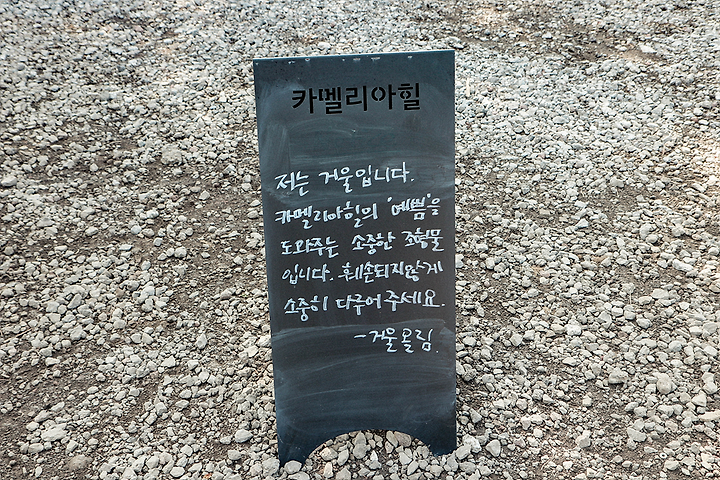 카멜리아힐
저는 거울입니다.
카멜리아힐의 '예쁨'을
도와주는 소중한 조형물
입니다. 훼손되지않게
소중히 다루어주세요.
-거울올림.